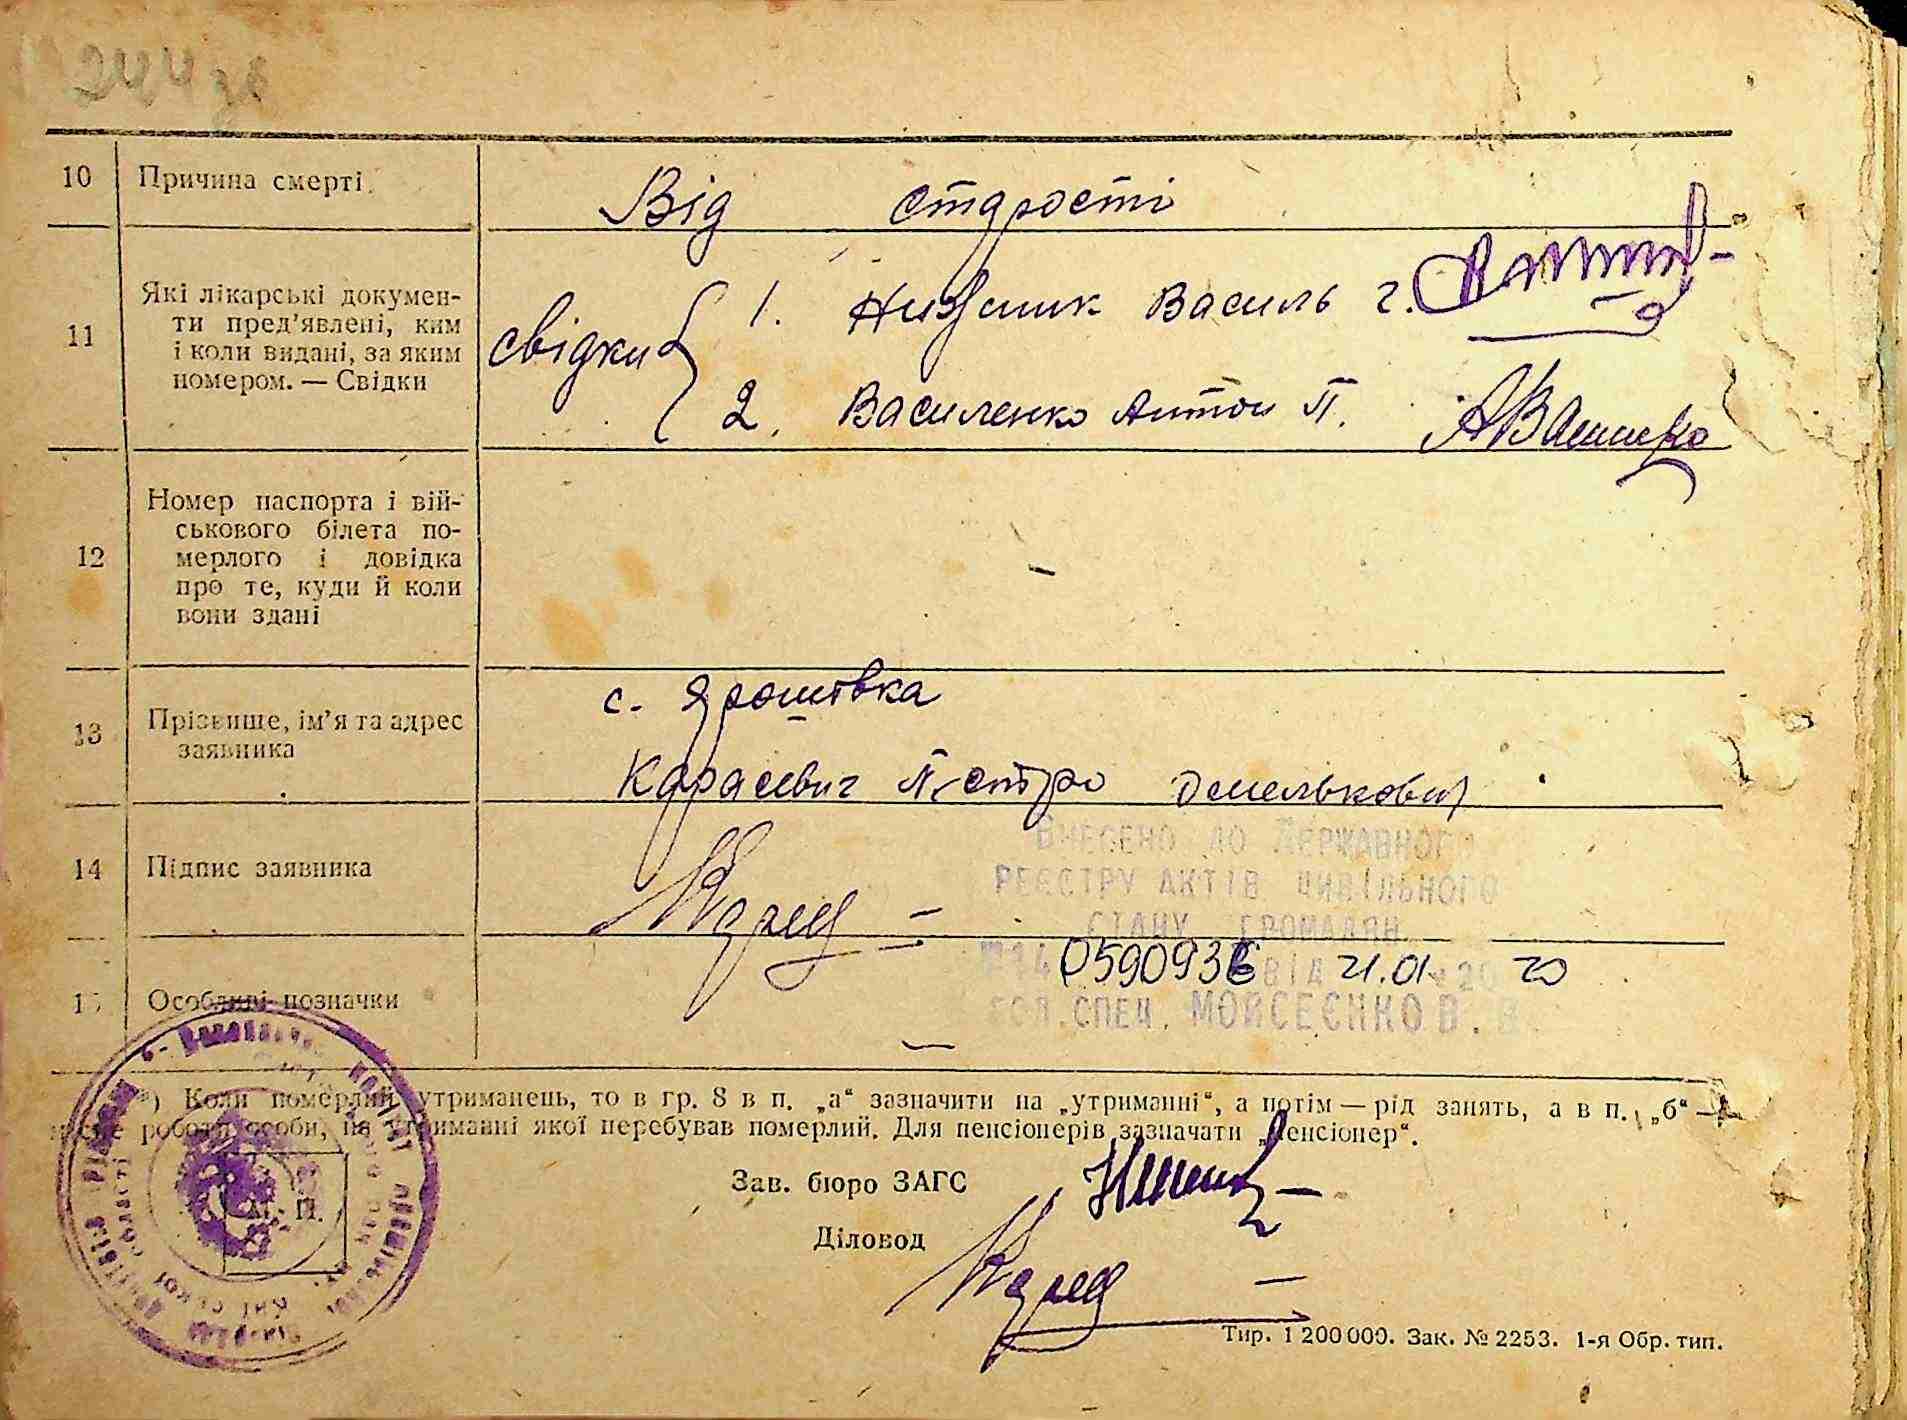 244 зв
10 Причина смерті. Від старості
11 Які лікарські докумен-
ти пред'явлені, ким
і коли видані, за яким
номером. — Свідки
свідки { 1. Василь Г.
2. Василенко Антон П.
12 Номер паспорта і вій-
ськового білета по-
мерлого і довідка
про те, куди й коли
вони здані
–
13 Прізвище, ім'я та адрес
заявника
с. Ярошівка
Карасевич Петро Омелькович
14 Підпис заявника
Внесено до Державного
реєстру актів цивільного
стану громадян
від 21.01 20 20
гол. спец. Мойсеєнко В. В.
15 Особливі позначки
–
*) Коли померлий утриманець, то в гр. 8 в п. „а“ зазначити на „утриманні“, а потім — рід занять, а в п. „б“ —
місце роботи особи, на утриманні якої перебував померлий. Для пенсіонерів зазначати „Пенсіонер“.
Зав. бюро ЗАГС
Діловод
М. П.
Тир. 1 200 000. Зак. № 2253. 1-я Обр. тип.